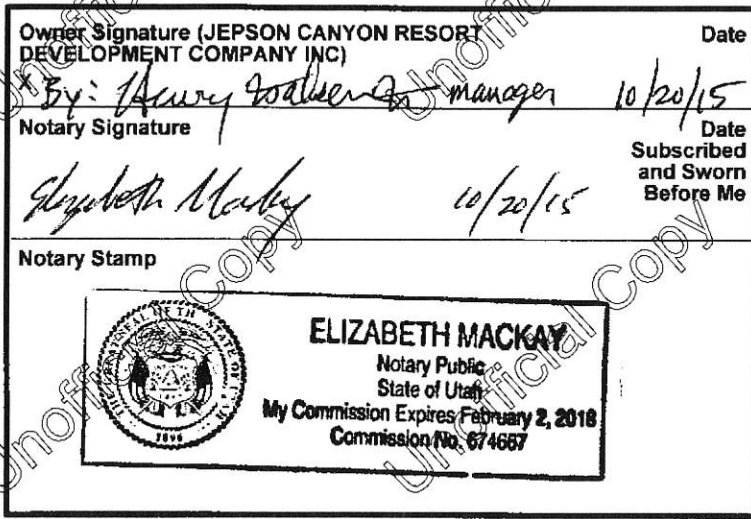 Owner Signature (JEPSON CANYON RESORT DEVELOPMENT COMPANY INC)
Date
By: Henry manager 10/20/15
Notary Signature
Date Subscribed and Sworn Before Me
Elizabeth Mackay 10/20/15
Notary Stamp
THE GREAT SEAL OF THE STATE OF UTAH
1896
ELIZABETH MACKAY
Notary Public
State of Utah
My Commission Expires February 2, 2018
Commission No. 674667
Unofficial Copy
Unofficial Copy